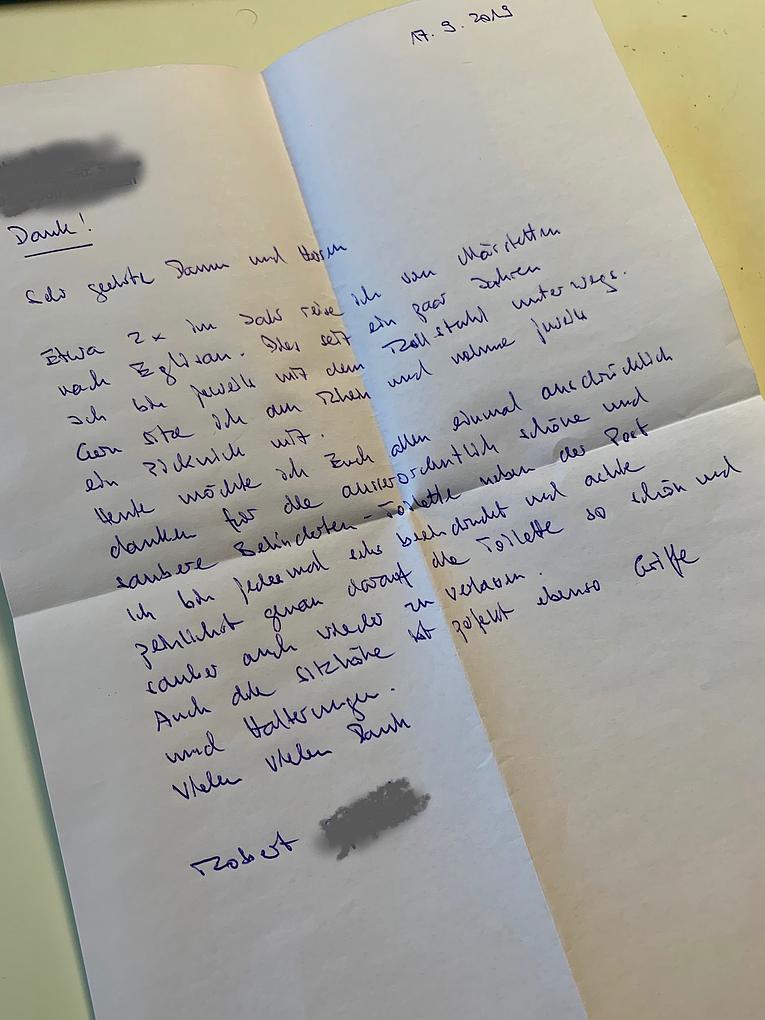 17. 9. 2019
Dank!
Sehr geehrte Damen und Herren
Etwa 2x im Jahr reise ich von Märstetten
nach Eglisau. Dies seit ein paar Jahren
Ich bin jeweils mit dem Rollstuhl unterwegs.
Gern sitze ich am Rhein und nehme jeweils
ein Picknick mit.
Heute möchte ich Euch allen einmal ausdrücklich
danken für die ausserordentlich schöne und
saubere Behinderten-Toilette neben der Post
Ich bin jedesmal sehr beeindruckt und achte
peinlichst genau darauf die Toilette so schön und
sauber auch wieder zu verlassen.
Auch die Sitzhöhe ist perfekt ebenso Griffe
und Halterungen.
Vielen Vielen Dank
Robert